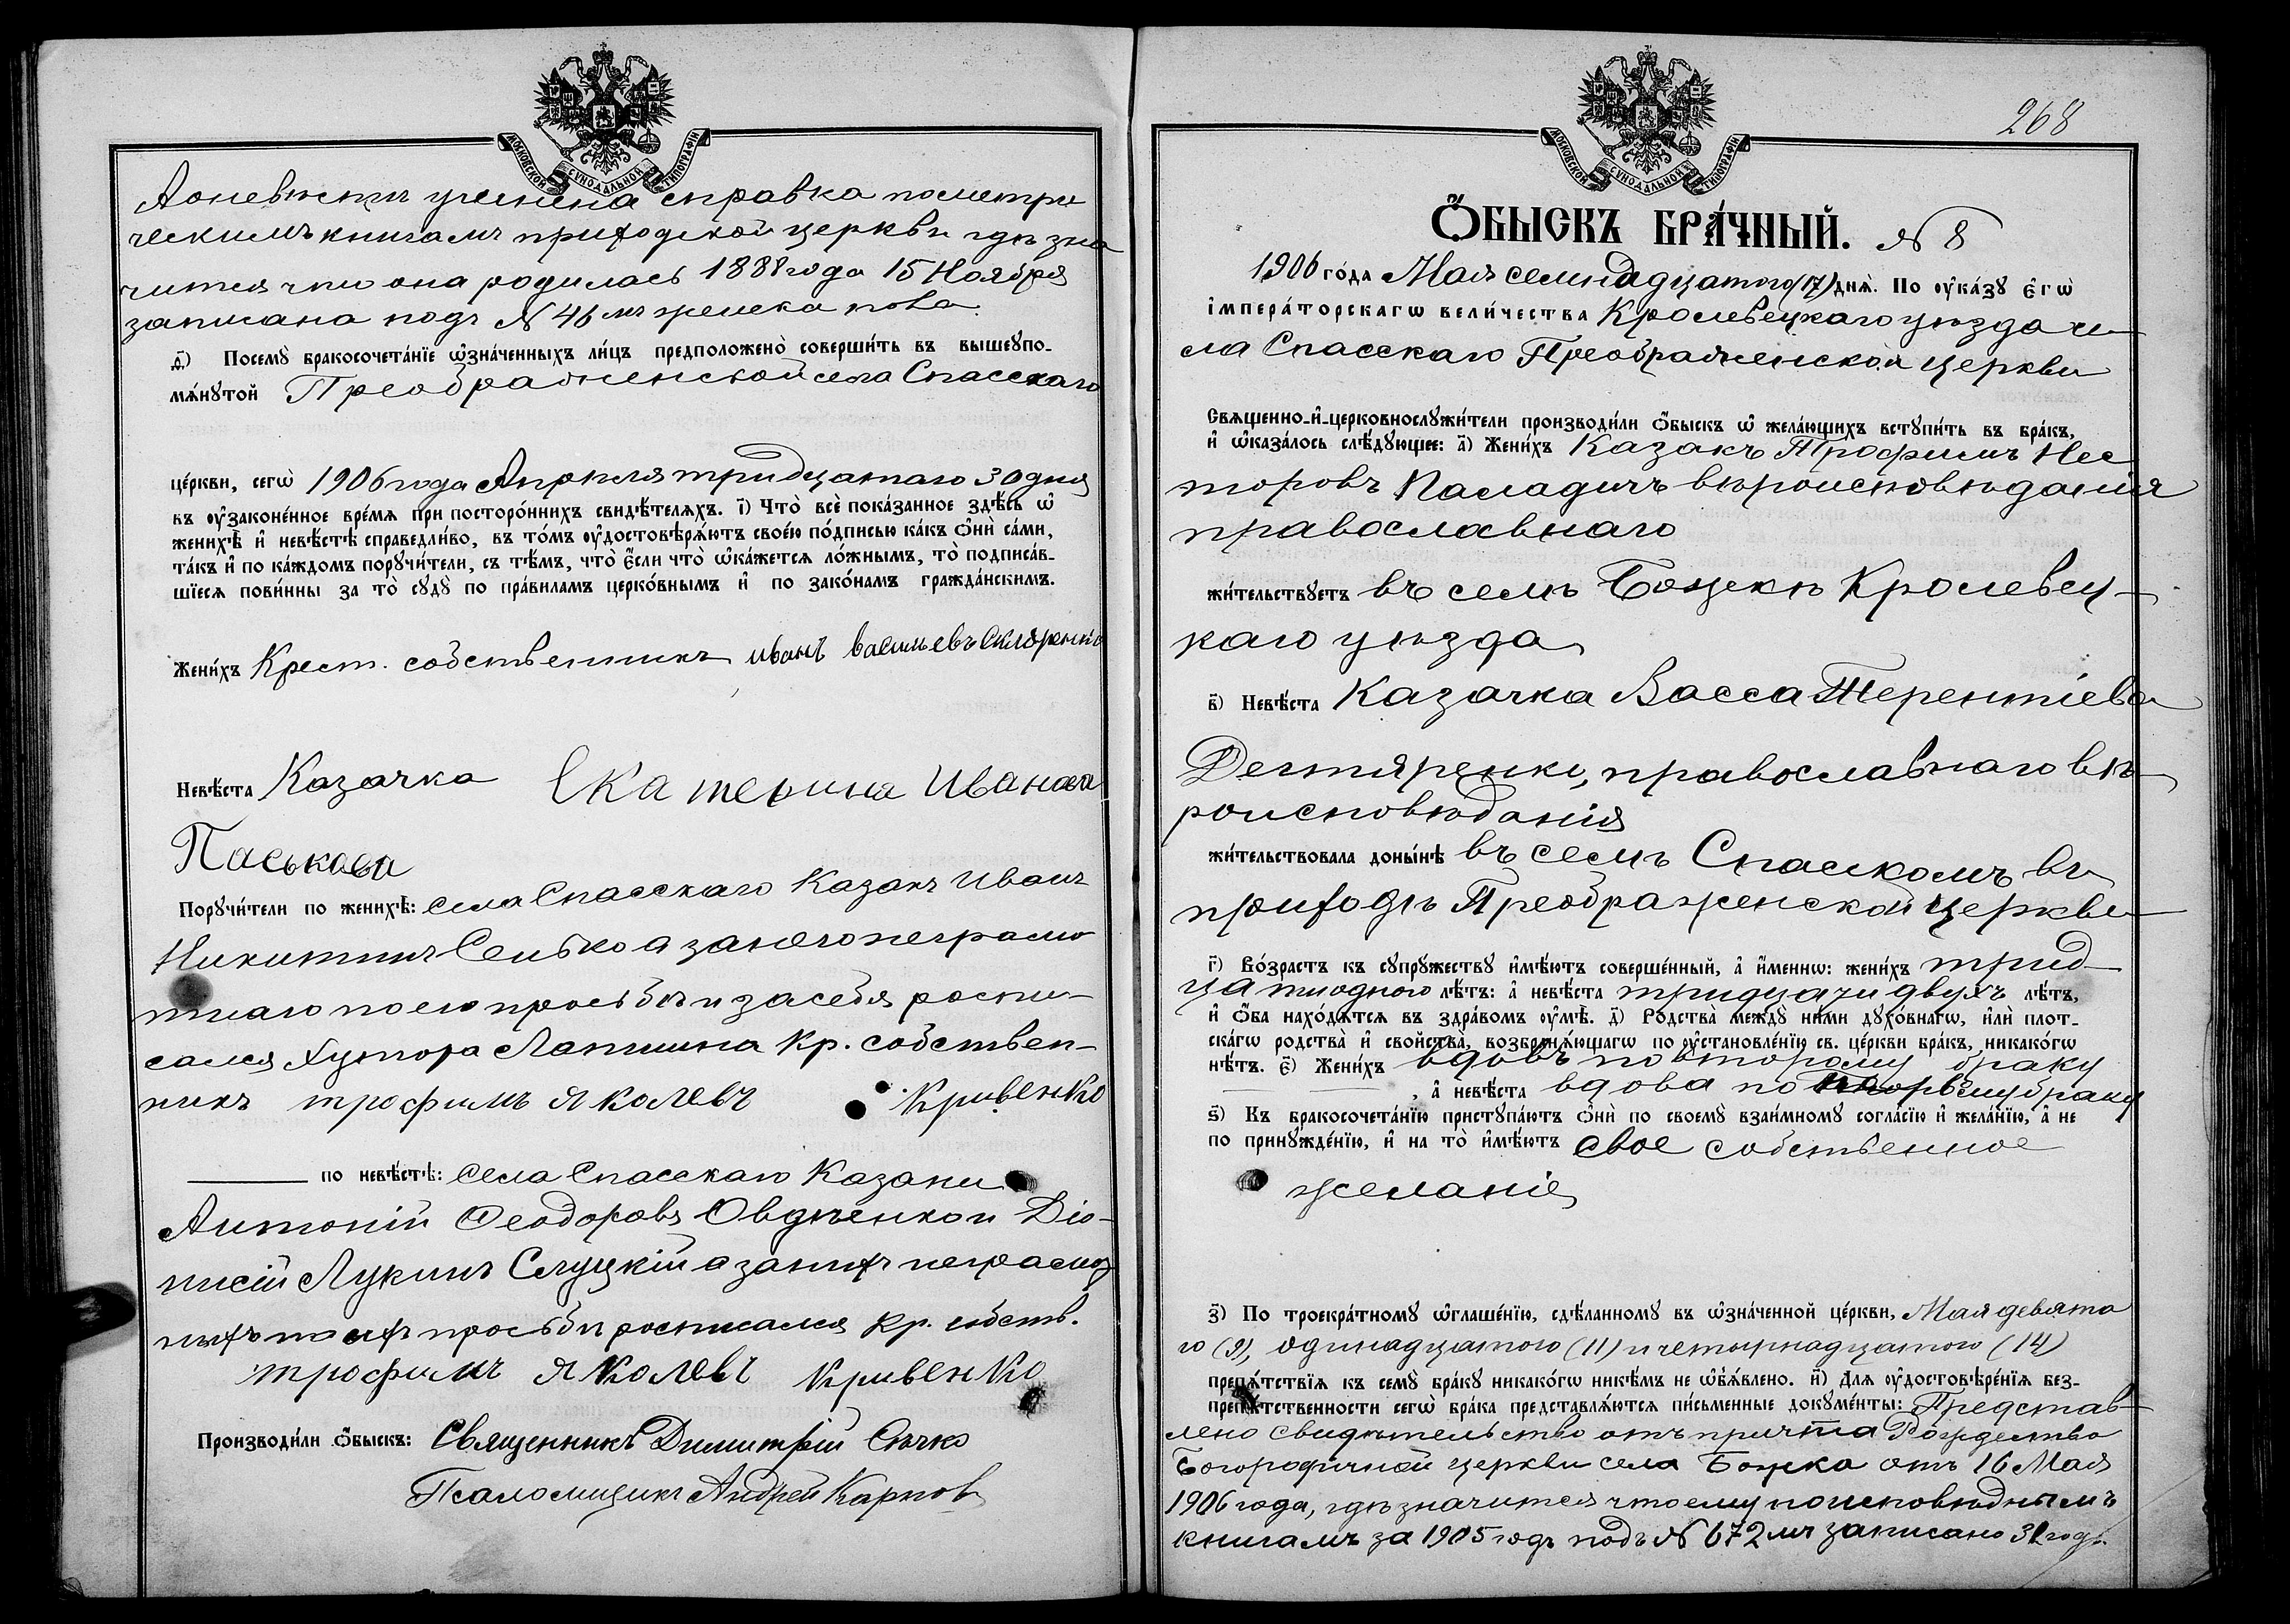 МОСКОВСКОЙ СѴНОДАЛЬНОЙ ТИПОГРАФІИ
А о невѣстѣ учинена справка по метри
ческимъ книгамъ приходской церкви гдѣ зна
чится что она родилась 1888 года 15 Ноября
записана подъ № 46 мъ женска пола.
ѳ҃) Посемꙋ̀ бракосочета́нїе ѡ҆зна́ченныхъ ли́цъ предположено̀ соверши́ть въ вышеꙋпо-
мѧ́нꙋтой Преображенской села Спасскаго
це́ркви, сегѡ̀ 1906 года Апрѣля тридцатаго 30 дня
въ ᲂу҆законе́нное вре́мѧ при посторо́ннихъ свидѣ́телѧхъ. і҃) Что̀ всѐ пока́занное здѣ́сь ѡ҆
женихѣ̀ и҆ невѣ́стѣ справедли́во, въ то́мъ ᲂу҆достовѣрѧ́ютъ свое́ю по́дписью ка́къ ѻ҆нѝ са́ми,
та́къ и҆ по ка́ждомъ порꙋчи́тели, съ тѣ́мъ, что̀ є҆́сли что̀ ѡ҆ка́жетсѧ ло́жнымъ, то̀ подписа́в-
шїесѧ пови́нны за то̀ сꙋдꙋ̀ по пра́виламъ церко́внымъ и҆ по зако́намъ гражда́нскимъ.
Жени́хъ Крест. собственникъ иванъ васильевъ Скляренко
Невѣ́ста Казачка Екатерина Иванова
Паськова
Порꙋчи́тели по женихѣ̀: села Спасскаго Казакъ Иванъ
Никитинъ Сенько а за него неграмо
тнаго по его просьбѣ и за себя распи-
сался хутора Лапшина кр. собствен-
никъ трофимъ яколевъ Кривенко
по невѣ́стѣ: села Спасскаго Казаки
Антоній Феодоровъ Овдѣенко и Діо-
нисій Лукинъ Слуцкій а за нихъ неграмот
ныхъ по ихъ просьбѣ росписался кр. собств.
трофимъ яколевъ Кривенко
Производи́ли ѻ҆́быскъ: Священникъ Димитрій Сѣчко
Псаломщикъ Андрей Карпов
268
МОСКОВСКОЙ СѴНОДАЛЬНОЙ ТИПОГРАФІИ
Ѻ҆́БЫСКЪ БРА́ЧНЫЙ. № 8
1906 го́да Мая семнадцатого (17) днѧ̀. По ᲂу҆ка́зꙋ є҆гѡ̀
і҆мпера́торскагѡ вели́чества Кролевецкаго уѣзда се-
ла Спасскаго Преображенской церкви
Свѧще́нно-и҆-церковнослꙋжи́тели производи́ли ѻ҆́быскъ ѡ҆ жела́ющихъ встꙋпи́ть въ бра́къ,
и҆ ѡ҆каза́лось слѣ́дꙋющее: а҃) Жени́хъ Казакъ Трофимъ Нес
торовъ Паладичъ вѣроисповѣданія
православнаго
жи́тельствꙋетъ въ селѣ Божкѣ Кролевец-
каго уѣзда
в҃) Невѣ́ста Казачка Васса Терентіева
Дегтяренко, православнаго вѣ-
роисповѣданія
жи́тельствовала доны́нѣ въ селѣ Спасскомъ въ
приходѣ Преображенской церкви
г҃) Во́зрастъ къ сꙋпрꙋ́жествꙋ и҆мѣ́ютъ соверше́нный, а҆ и҆́меннѡ: жени́хъ трид-
цати одного лѣ́тъ: а҆ невѣ́ста тридцати двухъ лѣ́тъ,
и҆ ѻ҆́ба нахо́дѧтсѧ въ здра́вомъ ᲂу҆мѣ̀. д҃) Родства̀ междꙋ̀ ни́ми дꙋхо́внагѡ, и҆лѝ плот-
ска́гѡ родства̀ и҆ свойства̀, возбранѧ́ющагѡ по ᲂу҆становле́нїю св. це́ркви бра́къ, никако́гѡ
нѣ́тъ. є҃) Жени́хъ вдовъ по второму браку
, а҆ невѣ́ста вдова по первому браку
ѕ҃) Къ бракосочета́нїю пристꙋпа́ютъ ѻ҆нѝ по своемꙋ̀ взаи́мномꙋ согла́сїю и҆ жела́нїю, а҆ не
по принꙋжде́нїю, и҆ на то̀ и҆мѣ́ютъ свое собственное
желаніе
з҃) По троекра́тномꙋ ѡ҆глаше́нїю, сдѣ́ланномꙋ въ ѡ҆зна́ченной це́ркви, Мая девято
го (9), одинадцатого (11) и четырнадцатого (14)
препѧ́тствїѧ къ семꙋ̀ бра́кꙋ никако́гѡ никѣ́мъ не ѡ҆б̾ѧ́влено. и҃) Длѧ ᲂу҆достовѣре́нїѧ без-
препѧ́тственности сегѡ̀ бра́ка представлѧ́ютсѧ пи́сьменные докꙋме́нты: Представ-
лено свидѣтельство отъ причта Рождество
Богородичной церкви села Божка отъ 16 Мая
1906 года, гдѣ значится что ему по исповѣднымъ
книгамъ за 1905 годъ подъ № 672 мъ записано 31 годъ.